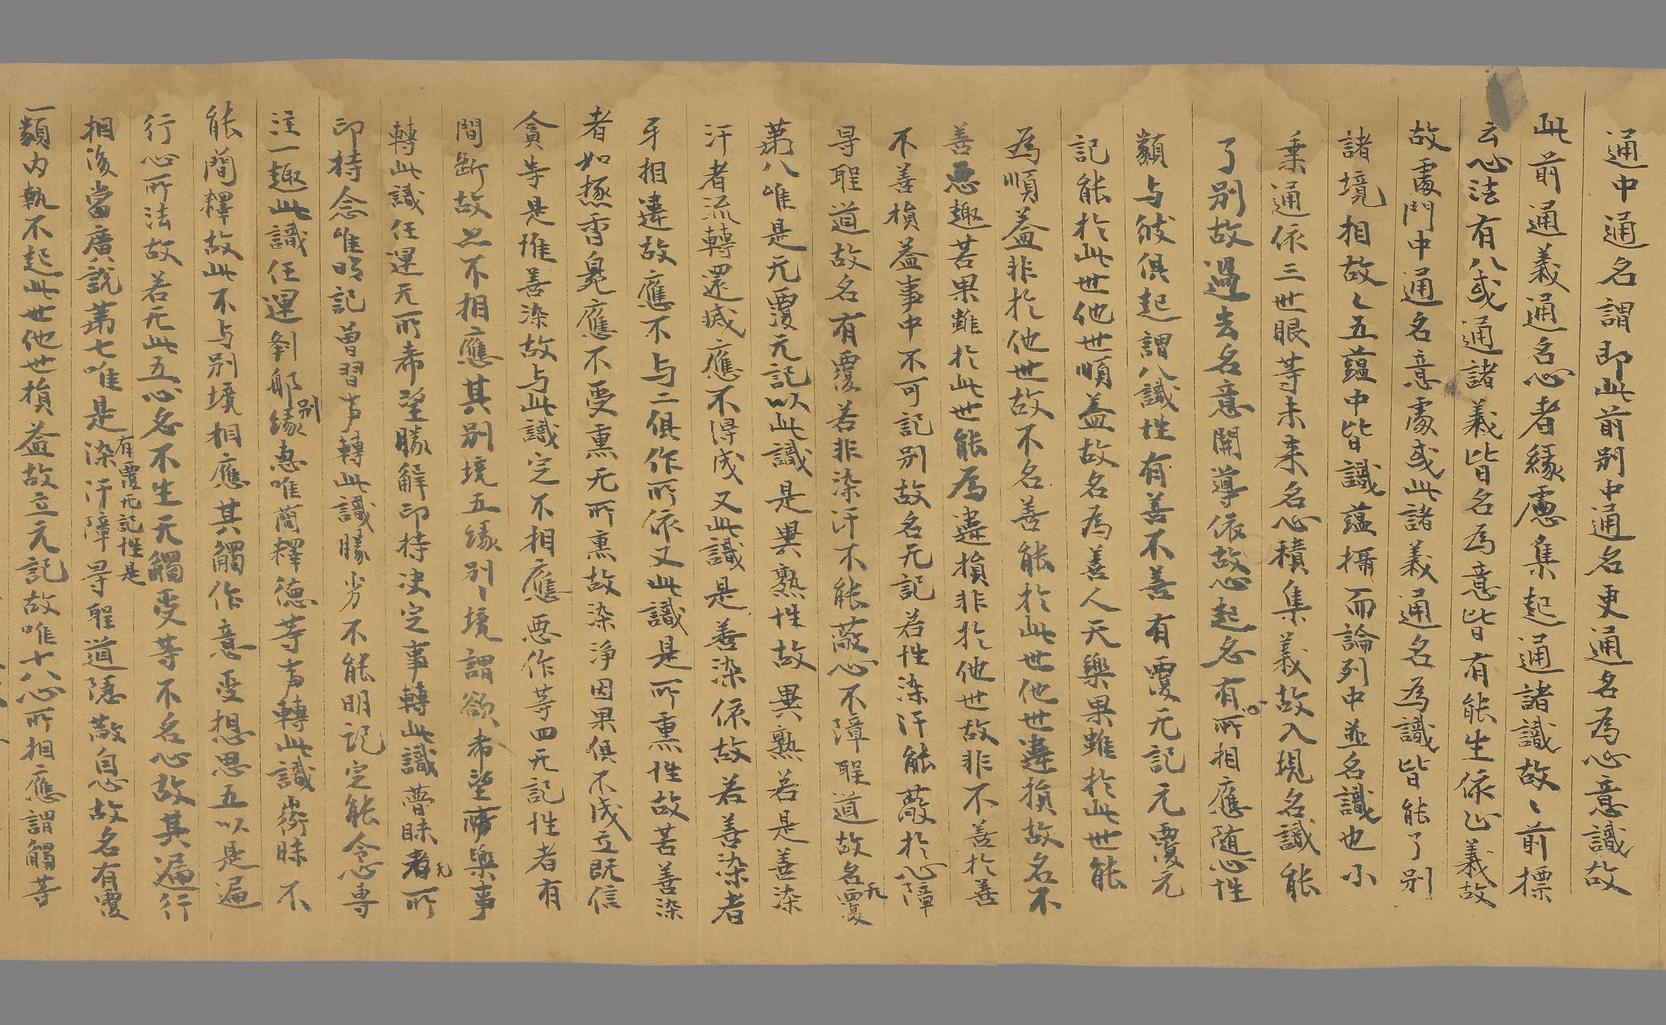 通中通名謂即此前別中通名更通名為心意識故
此前通義通名心者緣慮集起通諸識故〻前標
云心法有八或通諸義皆名為意皆有能生依止義故
故處門中通名意處或此諸義通名為識皆能了別
諸境相故〻五蘊中皆識蘊攝而論列中並名識也小
乘通依三世眼等未來名心積集義故入現名識能
了別故過去名意開導依故心起名有所相應隨心性
類与彼俱起謂八識性有善不善有覆无記无覆无
記能於此世他世順益故名為善人天樂果雖於此世能
為順益非於他世故不名善能於此世他世違損故名不
善惡趣苦果雖於此世能為違損非於他世故非不善於善
不善損益事中不可記別故名无記若性染汙能蔽於心障
㝵聖道故名有覆若非染汙不能蔽心不障聖道故名无覆
第八唯是无覆无記以此識是異熟性故異熟若是善染
汙者流轉還滅應不得成又此識是善染依故若善染者
互相違故應不与二俱作所依又此識是所熏性故若善染
者如極香臭應不受熏无所熏故染淨因果俱不成立既信
貪等是惟善染故与此識定不相應惡作等四无記性者有
間斷故也不相應其別境五緣別〻境謂欲希望所樂事
轉此識任運无所希望勝解印持決定事轉此識瞢昧者无所
印持念唯明記曾習事轉此識昧劣不能明記定能令心專
注一趣此識任運剎那別緣惠唯簡擇德等事轉此識微昧不
能簡擇故此不与別境相應其觸作意受想思五以是遍
行心所法故若无此五心名不生无觸受等不名心故其遍行
相後當廣說第七唯是有覆无記性是染汙障㝵聖道隱蔽自心故名有覆
一類內執不起此世他世損益故立无記故唯十八心所相應謂觸等